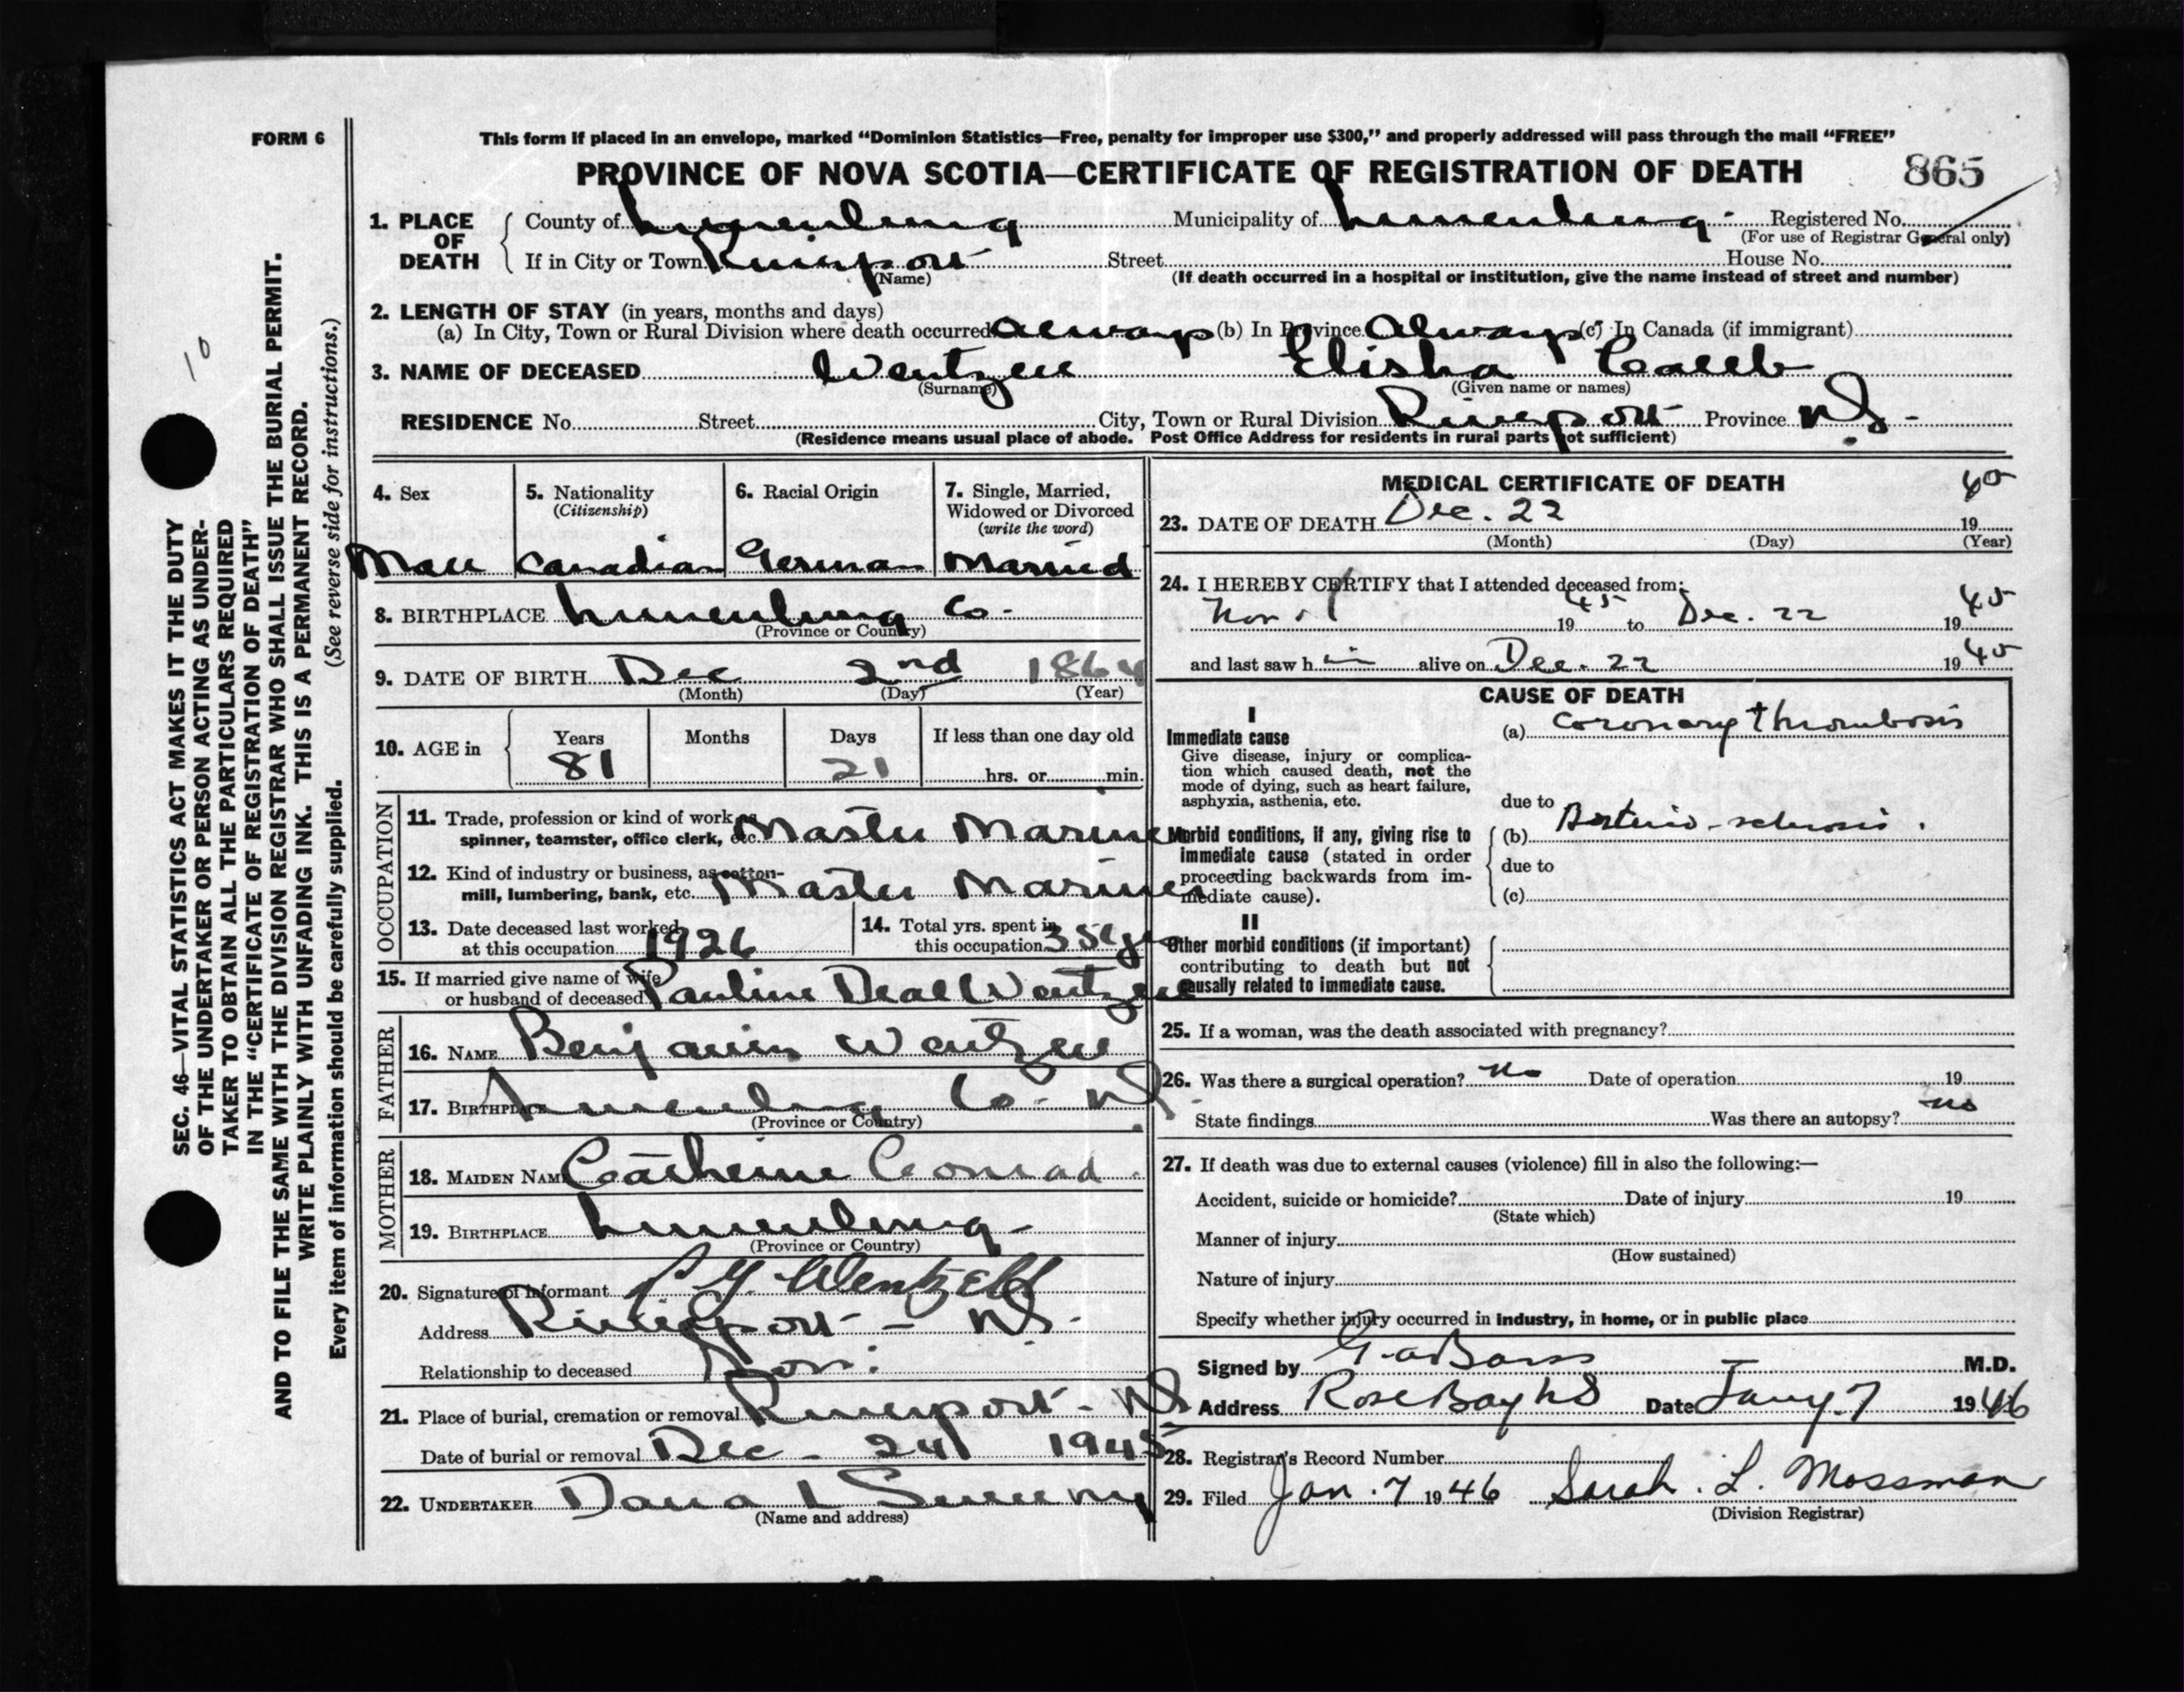 FORM 6
This form if placed in an envelope, marked “Dominion Statistics—Free, penalty for improper use $300,” and properly addressed will pass through the mail “FREE”
PROVINCE OF NOVA SCOTIA—CERTIFICATE OF REGISTRATION OF DEATH 865
1. PLACE OF DEATH County of Lunenburg Municipality of Lunenburg Registered No.
(For use of Registrar General only)
If in City or Town Riverport Street House No.
(Name) (If death occurred in a hospital or institution, give the name instead of street and number)
2. LENGTH OF STAY (in years, months and days)
(a) In City, Town or Rural Division where death occurred Always (b) In Province Always (c) In Canada (if immigrant)
3. NAME OF DECEASED Wentzell Elisha Caleb
(Surname) (Given name or names)
RESIDENCE No. Street City, Town or Rural Division Riverport Province N.S.
(Residence means usual place of abode. Post Office Address for residents in rural parts not sufficient)
4. Sex Male
5. Nationality (Citizenship) Canadian
6. Racial Origin German
7. Single, Married, Widowed or Divorced (write the word) Married
8. BIRTHPLACE Lunenburg Co.
(Province or Country)
9. DATE OF BIRTH Dec 2nd 1864
(Month) (Day) (Year)
10. AGE in Years Months Days If less than one day old
81 21 hrs. or min.
OCCUPATION
11. Trade, profession or kind of work as
spinner, teamster, office clerk, etc. Master Mariner
12. Kind of industry or business, as cotton-
mill, lumbering, bank, etc. Master Mariner
13. Date deceased last worked
at this occupation 1926
14. Total yrs. spent in
this occupation 35
15. If married give name of wife
or husband of deceased Pauline Deal Wentzell
FATHER
16. NAME Benjamin Wentzell
17. BIRTHPLACE Lunenburg Co. N.S.
(Province or Country)
MOTHER
18. MAIDEN NAME Catherine Conrad
19. BIRTHPLACE Lunenburg
(Province or Country)
20. Signature of informant Wentzell
Address Riverport - N.S.
Relationship to deceased Son.
21. Place of burial, cremation or removal Riverport - N.S
Date of burial or removal Dec - 24 1945
22. UNDERTAKER Dana L Sweeny
(Name and address)
MEDICAL CERTIFICATE OF DEATH
23. DATE OF DEATH Dec. 22 1945
(Month) (Day) (Year)
24. I HEREBY CERTIFY that I attended deceased from:
Nov. 1 1945 to Dec. 22 1945
and last saw him alive on Dec. 22 1945
CAUSE OF DEATH
I
Immediate cause
Give disease, injury or complica-
tion which caused death, not the
mode of dying, such as heart failure,
asphyxia, asthenia, etc.
(a) Coronary thrombosis
due to
Morbid conditions, if any, giving rise to
immediate cause (stated in order
proceeding backwards from im-
mediate cause).
(b) Arterio-sclerosis.
due to
(c)
II
Other morbid conditions (if important)
contributing to death but not
causally related to immediate cause.
25. If a woman, was the death associated with pregnancy?
26. Was there a surgical operation? No Date of operation 19
State findings Was there an autopsy? no
27. If death was due to external causes (violence) fill in also the following:—
Accident, suicide or homicide? Date of injury 19
(State which)
Manner of injury
(How sustained)
Nature of injury
Specify whether injury occurred in industry, in home, or in public place
Signed by M.D.
Address Rose Bay NS Date Jany. 7 1946
28. Registrar's Record Number
29. Filed Jan. 7 1946 Sarah. L. Mossman
(Division Registrar)
SEC. 46—VITAL STATISTICS ACT MAKES IT THE DUTY
OF THE UNDERTAKER OR PERSON ACTING AS UNDER-
TAKER TO OBTAIN ALL THE PARTICULARS REQUIRED
IN THE “CERTIFICATE OF REGISTRATION OF DEATH”
AND TO FILE THE SAME WITH THE DIVISION REGISTRAR WHO SHALL ISSUE THE BURIAL PERMIT.
WRITE PLAINLY WITH UNFADING INK. THIS IS A PERMANENT RECORD.
Every item of information should be carefully supplied. (See reverse side for instructions.)
10